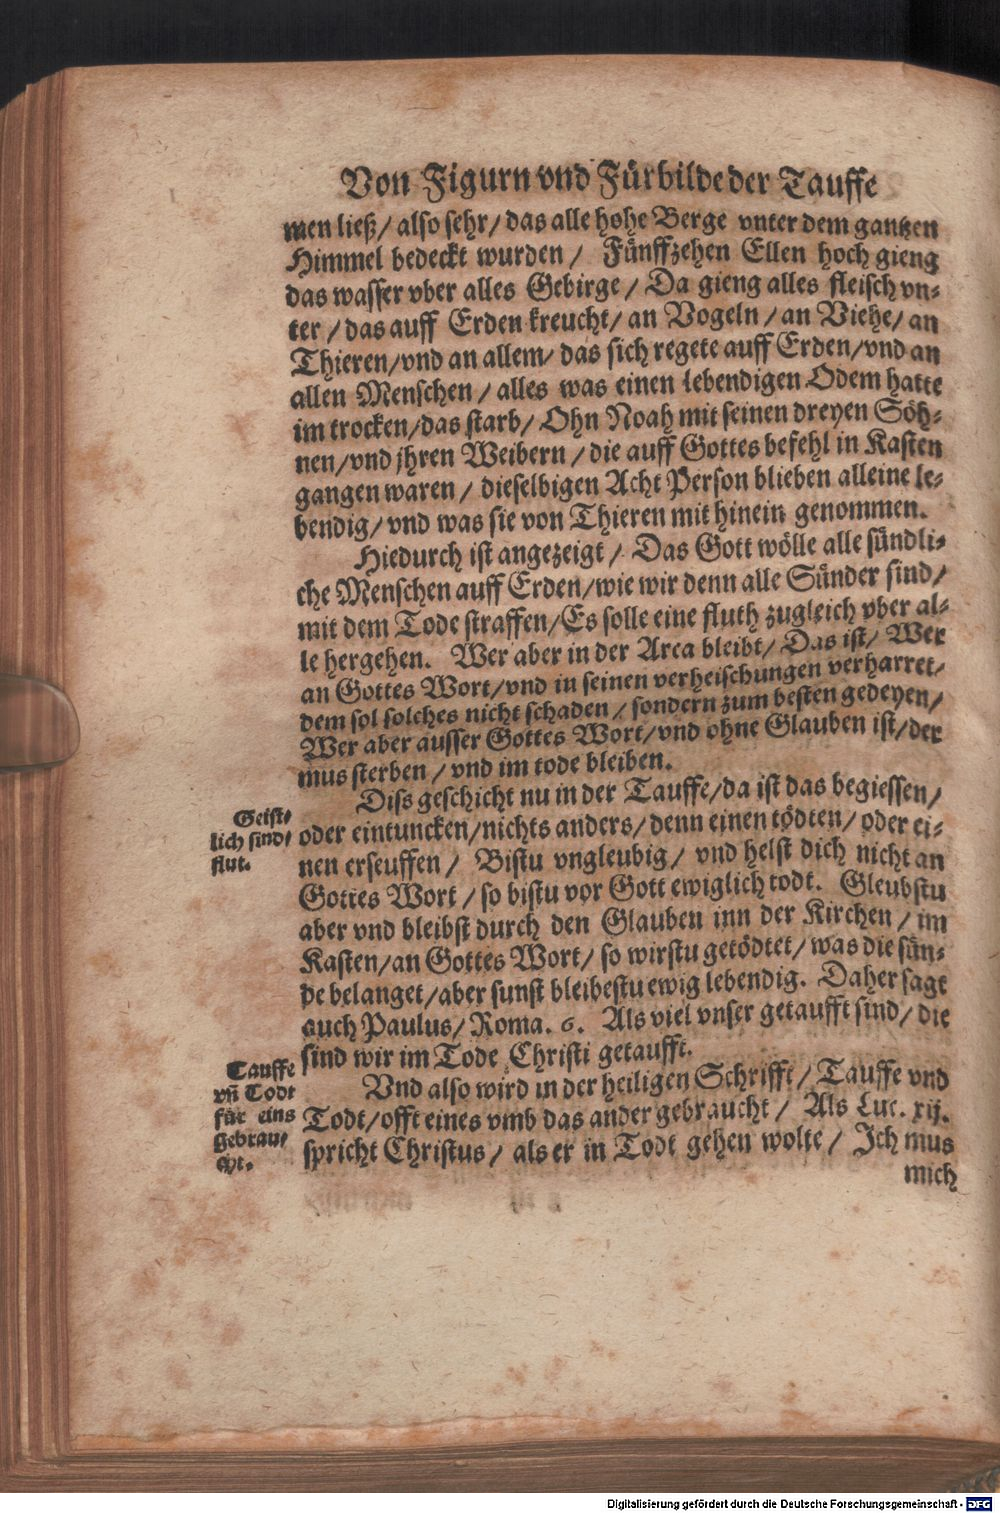 Von Figurn vnd Fürbilde der Tauffe
men ließ/ also sehr/ das alle hohe Berge vnter dem gantzen
Himmel bedeckt wurden / Fünffzehen Ellen hoch gieng
das wasser vber alles Gebirge / Da gieng alles fleisch vn-
ter / das auff Erden kreucht/ an Vogeln / an Viehe/ an
Thieren/vnd an allem/ das sich regete auff Erden/vnd an
allen Menschen / alles was einen lebendigen Odem hatte
im trocken/das starb/ Ohn Noah mit seinen dreyen Söh-
nen/vnd jhren Weibern / die auff Gottes befehl in Kasten
gangen waren / dieselbigen Acht Person blieben alleine le-
bendig/ vnd was sie von Thieren mit hinein genommen.
Hiedurch ist angezeigt / Das Gott wölle alle sündli-
che Menschen auff Erden/wie wir denn alle Sünder sind/
mit dem Tode straffen/Es solle eine fluth zugleich vber al-
le hergehen. Wer aber in der Arca bleibt/ Das ist/ Wer
an Gottes Wort/vnd in seinen verheischungen verharret/
dem sol solches nicht schaden / sondern zum besten gedeyen/
Wer aber ausser Gottes Wort/vnd ohne Glauben ist/der
mus sterben / vnd im tode bleiben.
Diss geschicht nu in der Tauffe/da ist das begiessen/
Geist-
lich sind-
flut.
oder eintuncken/nichts anders/ denn einen tödten/ oder ei-
nen erseuffen / Bistu vngleubig/ vnd helst dich nicht an
Gottes Wort / so bistu vor Gott ewiglich todt. Gleubstu
aber vnd bleibst durch den Glauben inn der Kirchen / im
Kasten/an Gottes Wort/ so wirstu getödtet/ was die sün-
de belanget/aber sunst bleibestu ewig lebendig. Daher sagt
auch Paulus/ Roma. 6. Als viel vnser getaufft sind/ die
sind wir im Tode Christi getaufft.
Tauffe
vñ Todt
für eins
gebrau-
cht.
Vnd also wird in der heiligen Schrifft/ Tauffe vnd
Todt/offt eines vmb das ander gebraucht / Als Luc. xij.
spricht Christus/ als er in Todt gehen wolte / Ich mus
mich
Digitalisierung gefördert durch die Deutsche Forschungsgemeinschaft - DFG